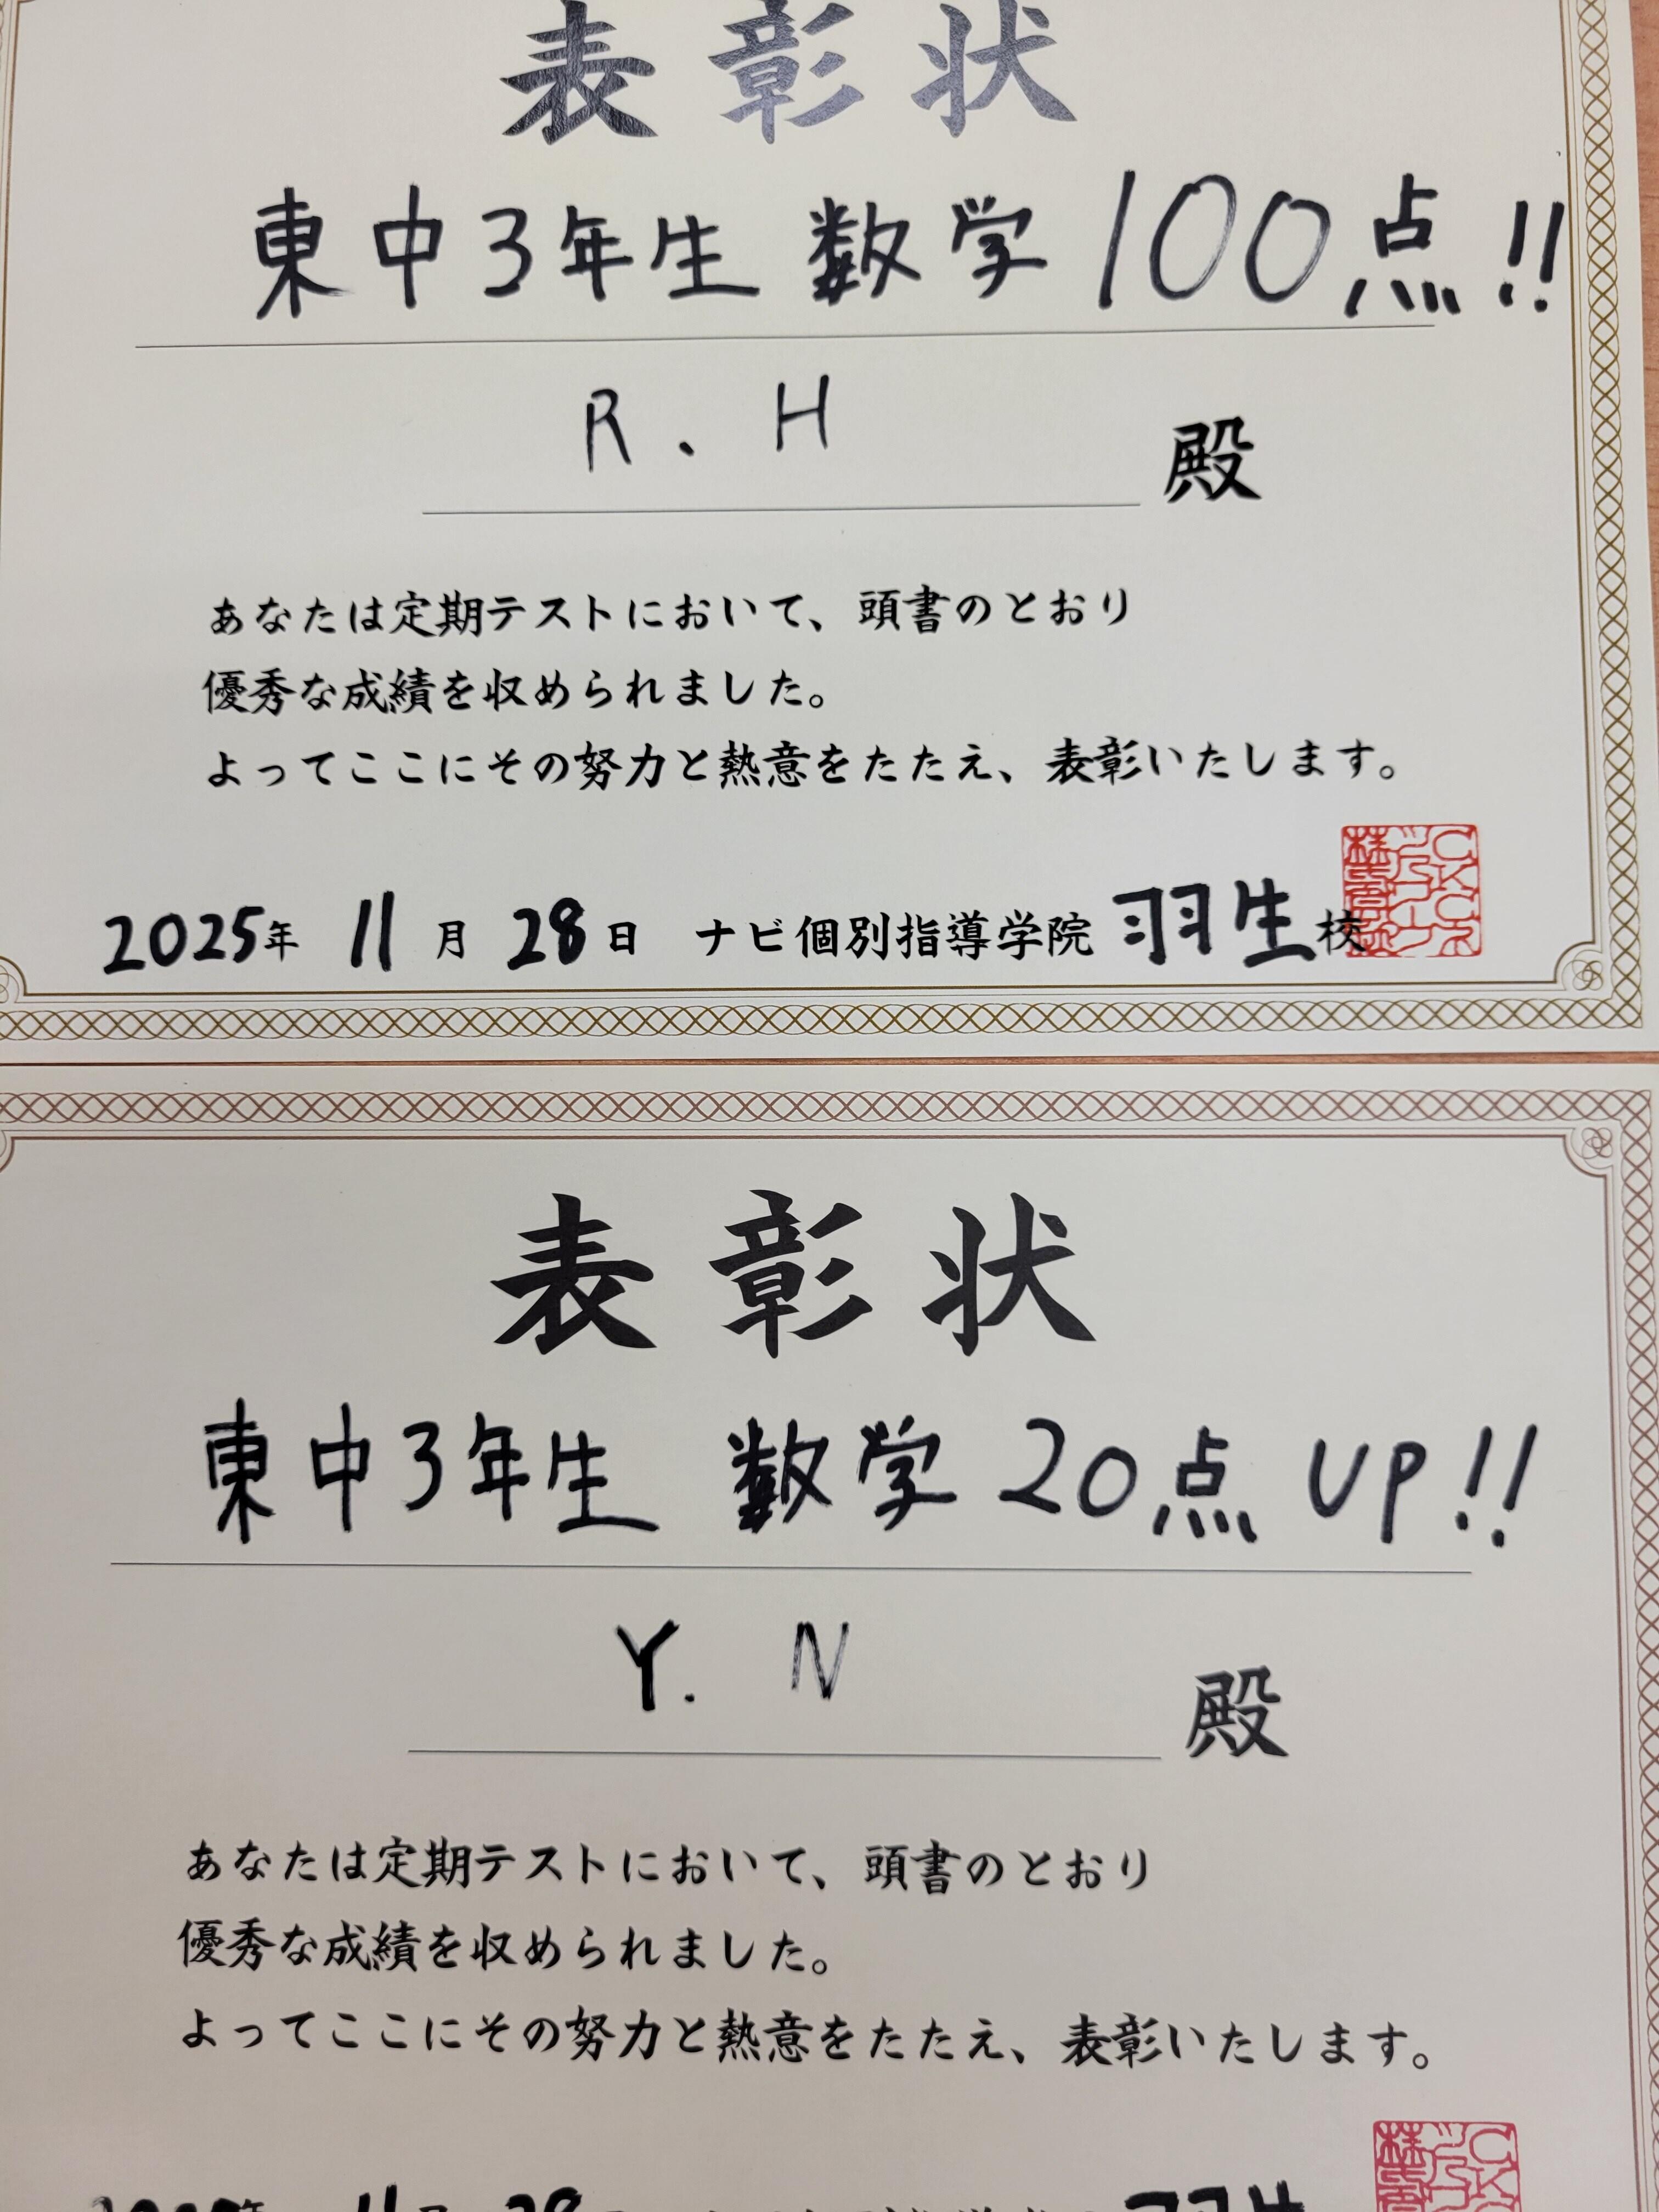 表彰状
東中3年生 数学 100点!!
R.H 殿
あなたは定期テストにおいて、頭書のとおり
優秀な成績を収められました。
よってここにその努力と熱意をたたえ、表彰いたします。
2025年 11月 28日 ナビ個別指導学院 羽生校
表彰状
東中3年生 数学 20点 UP!!
Y.N 殿
あなたは定期テストにおいて、頭書のとおり
優秀な成績を収められました。
よってここにその努力と熱意をたたえ、表彰いたします。